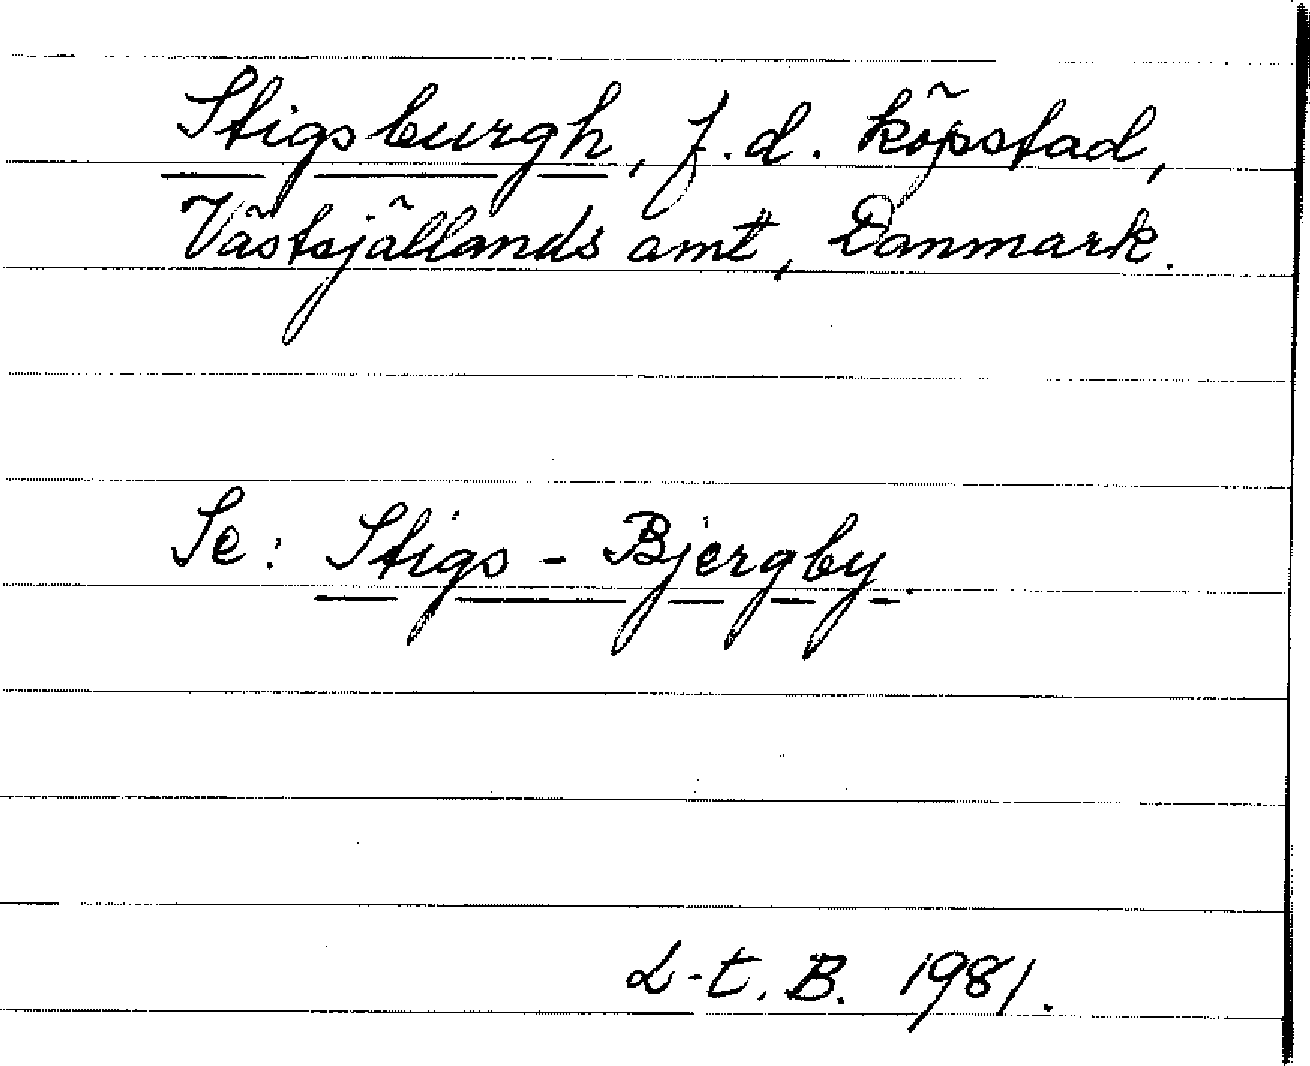 Stigsburgh, f.d. köpstad,
Västsjällands amt, Danmark.
Se: Stigs - Bjergby
L-t. B. 1981.